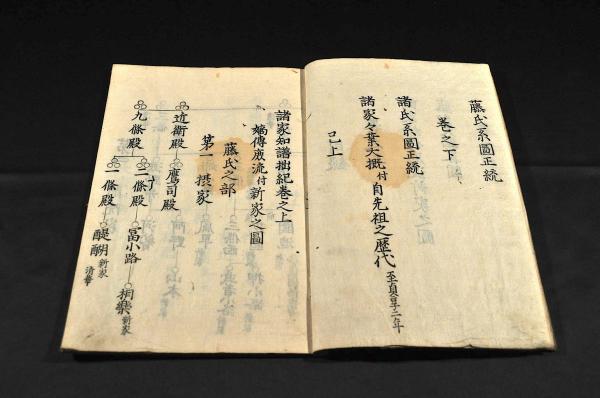 藤氏系圖正統
巻之下
諸氏系圖正統
諸家々業大概付自先祖之歴代至貞享二年
已上
諸家知譜拙紀巻之上
嫡傳庶流付新家之圖
藤氏之部
第一 摂家
近衛殿 鷹司殿
九條殿 二條殿 冨小路 桐樂新家
一條殿 醍醐新家清華